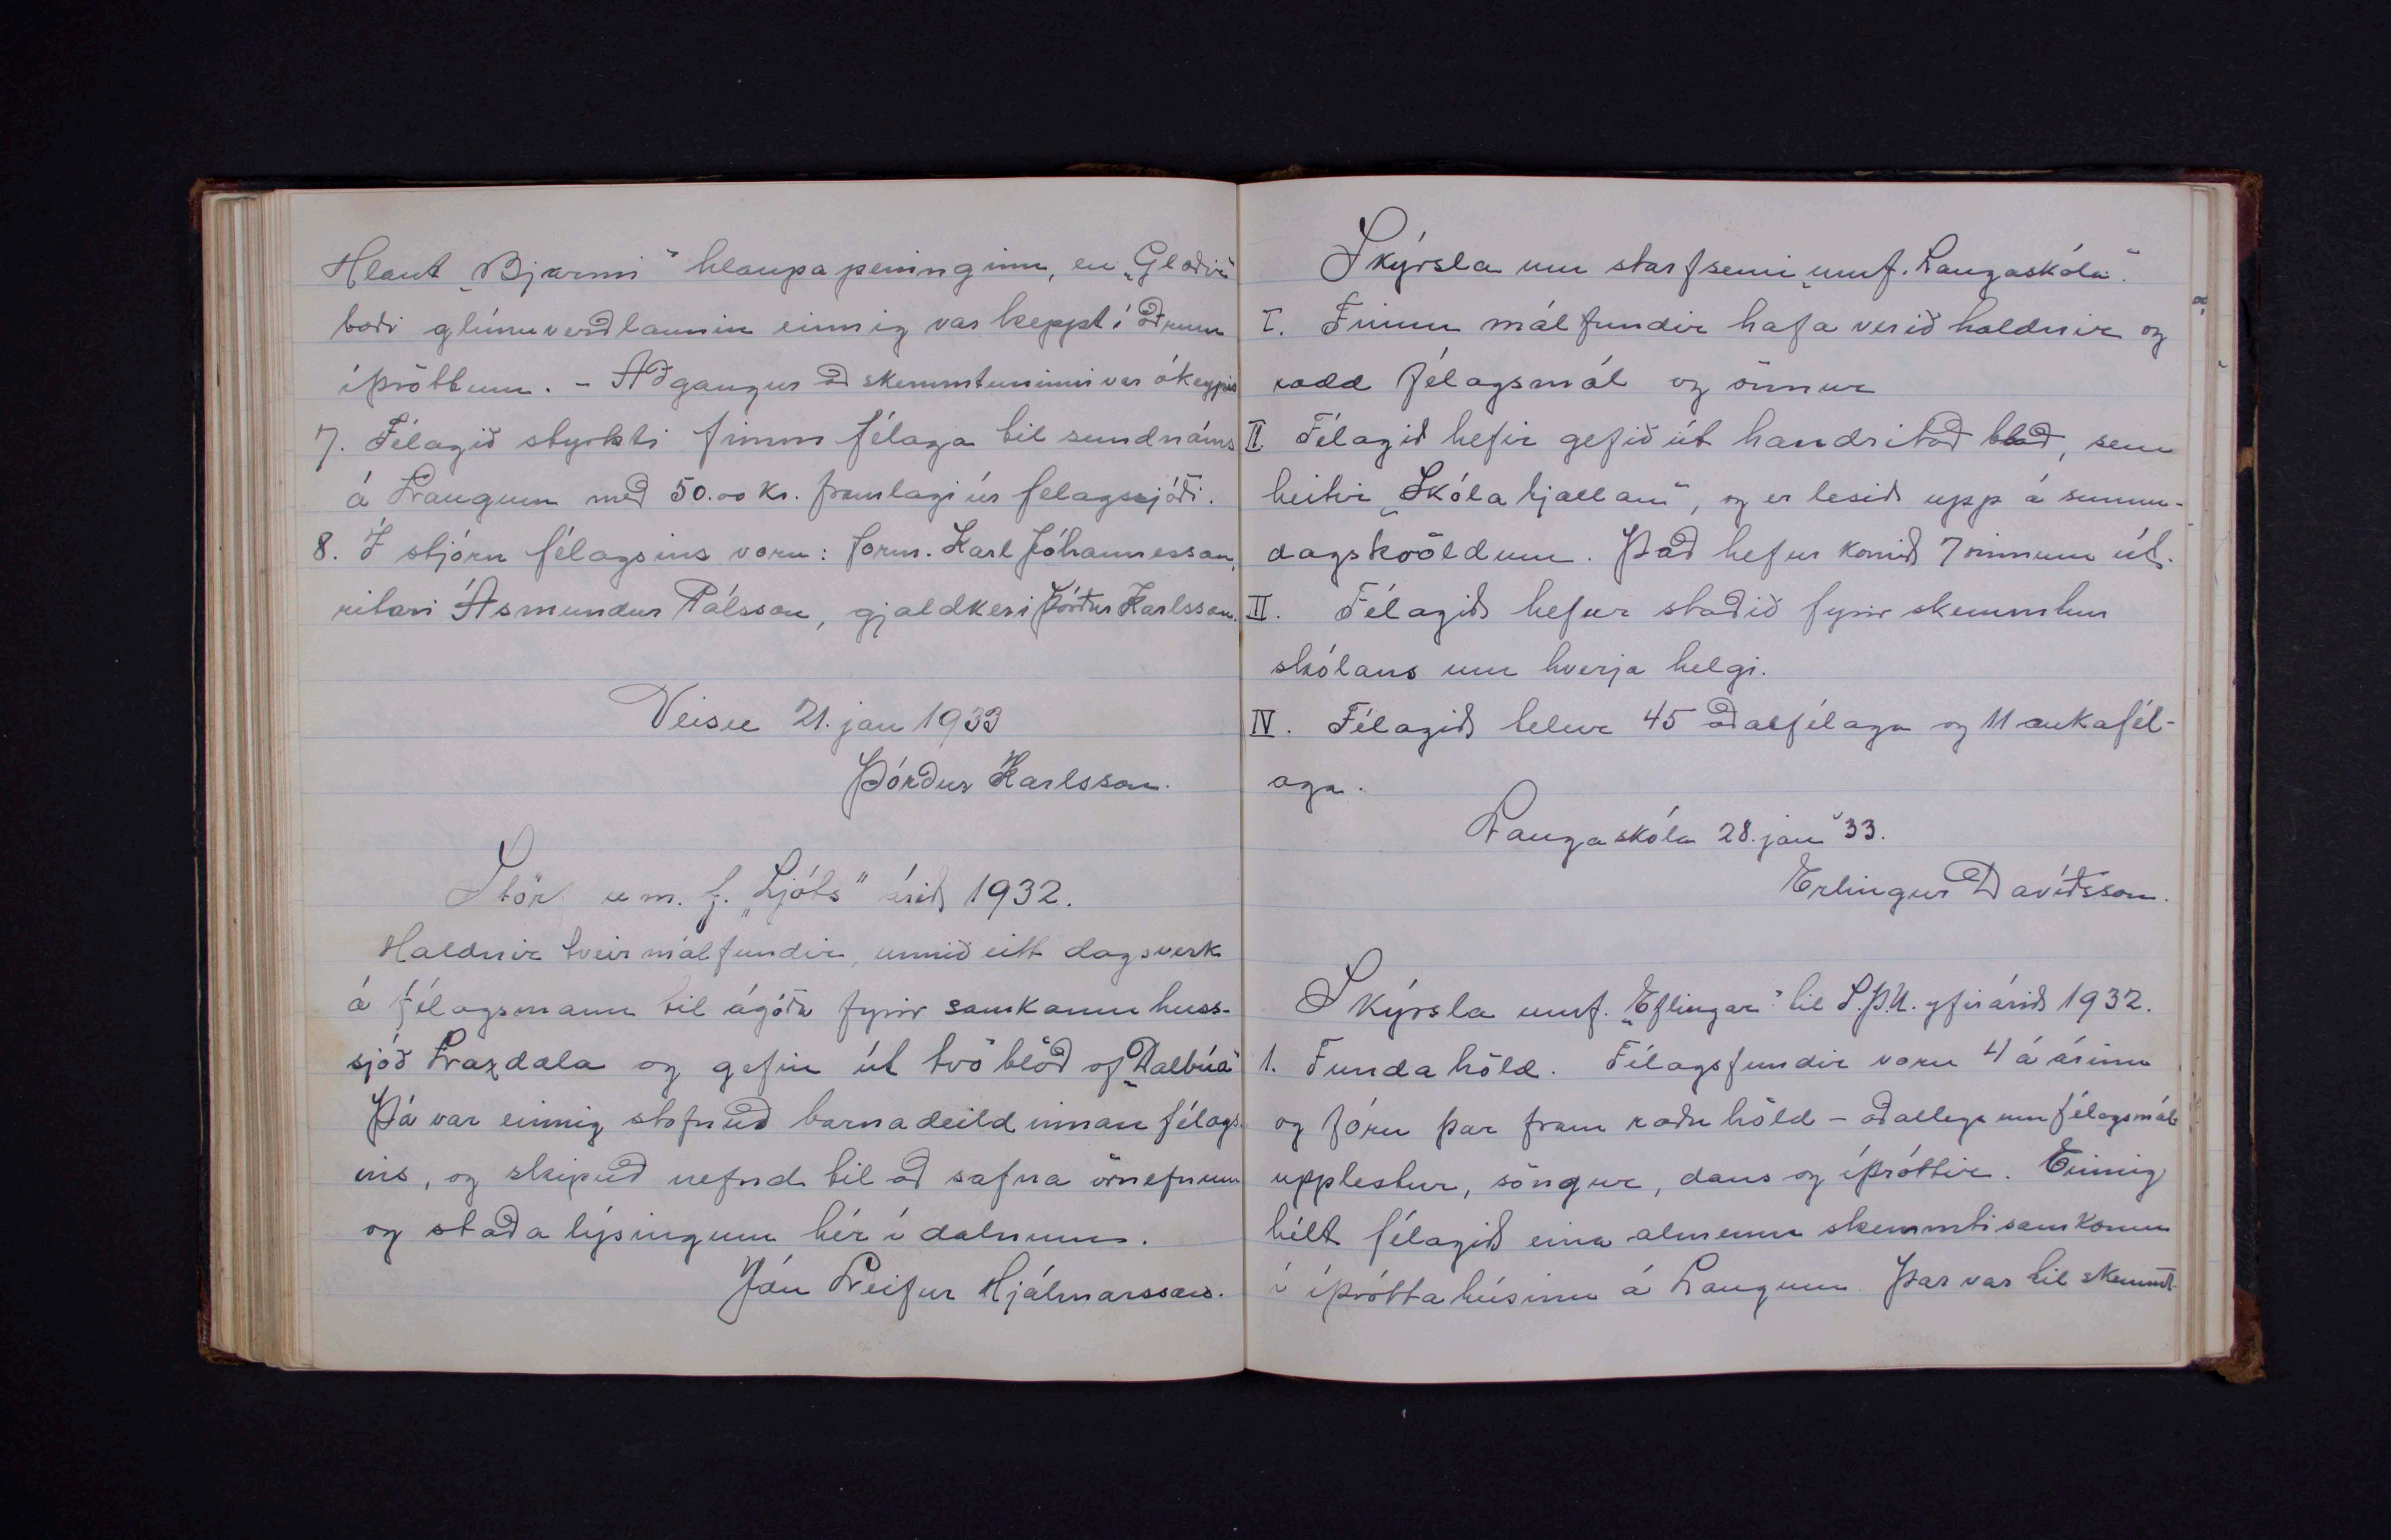 Hlaut „Bjarmi" hlaupapeninginn, en „Glaðir"
bæði glímuverðlaunin einnig var keppt í öðrum
íþróttum. - Aðgangur að skemmtuninni var ókeypis
7. Félagið styrkti fimm félaga til sundnáms
á Laugum með 50.00 kr. framlagi úr felagssjóði.
8. Í stjórn félagsins voru: form. Karl Jóhannesson,
ritari Ásmundur Pálsson, gjaldkeri Þórður Karlsson.
Veisu 21. jan 1933
Þórður Karlsson.
Störf u m. f. „Ljóts" árið 1932.
Haldnir tveir málfundir, unnið eitt dagsverk
á félagsmann til ágóða fyrir samkomuhuss-
sjóð Laxdala og gefin út tvö blöð af „Dalbúa"
Þá var einnig stofnuð barnadeild innan félags-
ins, og skipuð nefnd til að safna örnefnum
og staðalýsingum hér í dalnum.
Jón Leifur Hjálmarsson.
Skýrsla um starfsemi „umf. Laugaskóla".
I. Fimm málfundir hafa verið haldnir og
rædd félagsmál og önnur
II Félagið hefir gefið út handritað blað, sem
heitir „Skólabjallan", og er lesið upp á sunnu-
dagskvöldum. Það hefur komið 7 sinnum út.
II. Félagið hefur staðið fyrir skemmtun
skólans um hverja helgi.
IV. Félagið telur 45 aðalfélaga og 11 aukafél-
aga.
Laugaskóla 28. jan '33.
Erlingur Davíðsson.
Skýrsla umf. „Eflingar" til S.Þ.U. yfir árið 1932.
1. Fundahöld. Félagsfundir voru 4 á árinu
og fóru þar fram ræðuhöld - aðallega um félagsmál
upplestur, söngur, dans og íþróttir. Einnig
hélt félagið eina almenna skemmtisamkomu
í íþróttahúsinu á Laugum. Þar var til skemmt-